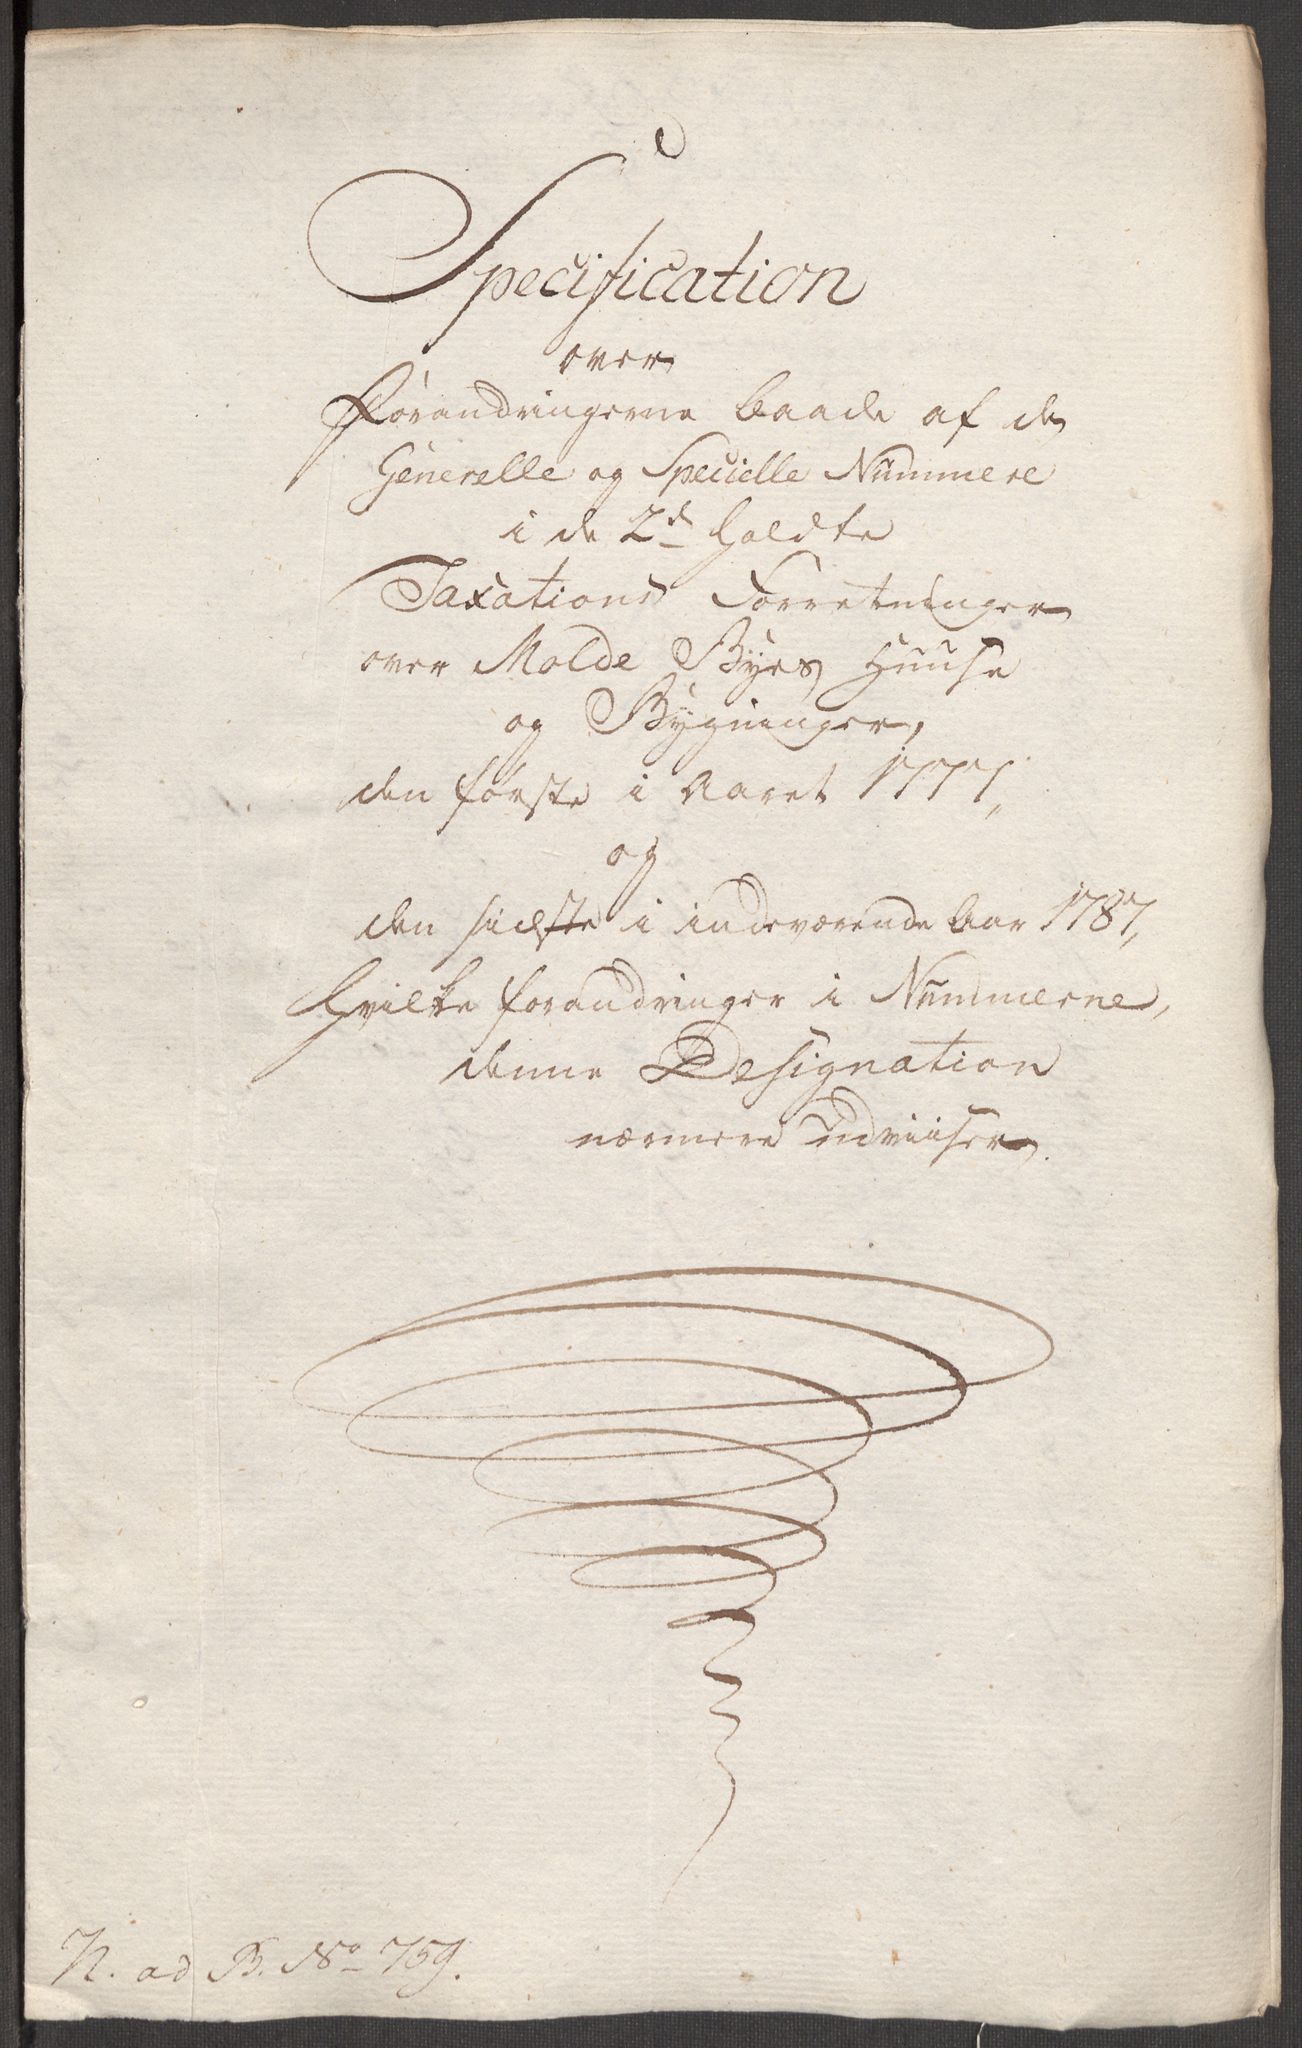 Specification
over
Forandringerne baade af de
Generelle og Specielle Nummere
i de 2de holdte
Taxations Forretninger
over Molde Byes Huuse
og Bygninger,
den første i Aaret 1777,
og
den sidste i indeværende Aar 1787,
hvilke forandringer i Nummerne,
denne Designation
nærmere udviiser.
N. ad B. No 759.